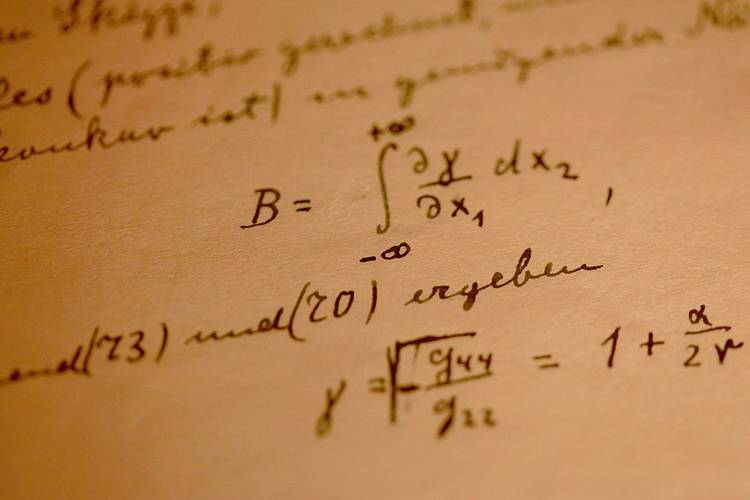 Skizze,
les (positiv gerechnet,
konkav ist) in genügender
B = ∫_{-∞}^{+∞} ∂γ/∂x₁ dx₂ ,
(73) und (70) ergeben
γ = √(- g₄₄/g₂₂) = 1 + α/2r